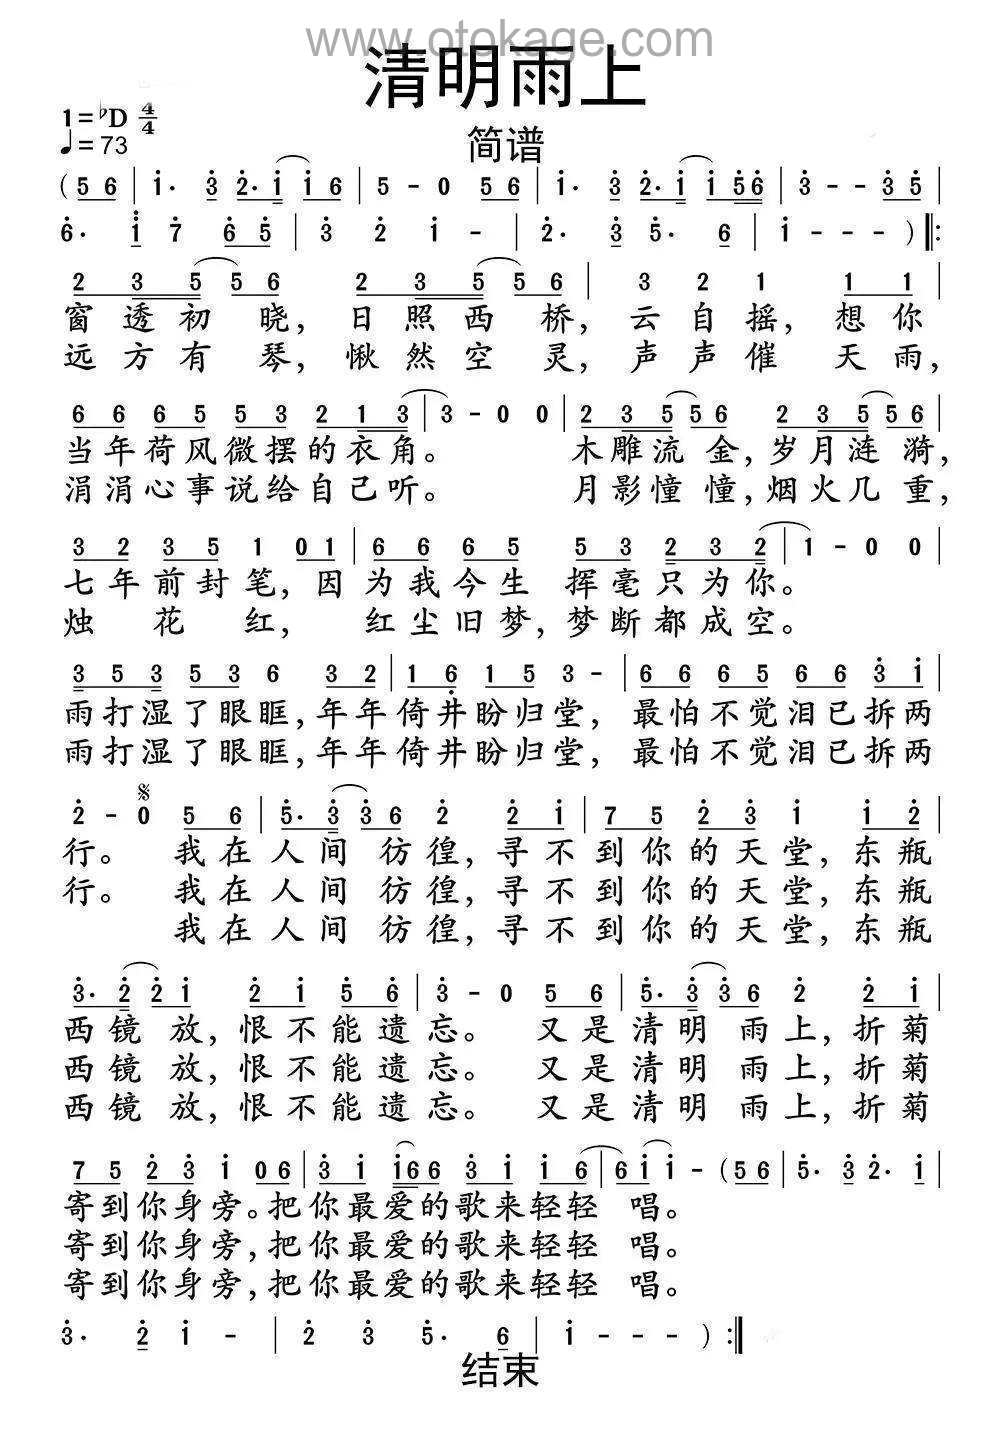 www.otokage.com
清明雨上
1=♭D 4/4
♩=73
简谱
(5 6 | 1· 3 2·1 1 6 | 5 - 0 5 6 | 1· 3 2·1 1 5 6 | 3 - - 3 5 |
6· 1 7 6 5 | 3 2 1 - | 2· 3 5· 6 | 1 - - - ) ‖:
2 3 5 5 6 2 3 5 5 6 | 3 2 1 1 1
窗透初晓,日照西桥,云自摇,想你
远方有琴,愀然空灵,声声催天雨,
6 6 6 5 5 3 2 1 3 | 3 - 0 0 | 2 3 5 5 6 2 3 5 5 6 |
当年荷风微摆的衣角。 木雕流金,岁月涟漪,
涓涓心事说给自己听。 月影憧憧,烟火几重,
3 2 3 5 1 0 1 | 6 6 6 5 5 3 2 3 2 | 1 - 0 0 |
七年前封笔,因为我今生挥毫只为你。
烛花红,红尘旧梦,梦断都成空。
3 5 3 5 3 6 3 2 | 1 6 1 5 3 - | 6 6 6 5 6 6 3 1 |
雨打湿了眼眶,年年倚井盼归堂,最怕不觉泪已拆两
雨打湿了眼眶,年年倚井盼归堂,最怕不觉泪已拆两
2 - 0 5 6 | 5· 3 3 6 2 2 1 | 7 5 2 3 1 1 2 |
行。 我在人间彷徨,寻不到你的天堂,东瓶
行。 我在人间彷徨,寻不到你的天堂,东瓶
我在人间彷徨,寻不到你的天堂,东瓶
3· 2 2 1 2 1 5 6 | 3 - 0 5 6 | 5· 3 3 6 2 2 1 |
西镜放,恨不能遗忘。 又是清明雨上,折菊
西镜放,恨不能遗忘。 又是清明雨上,折菊
西镜放,恨不能遗忘。 又是清明雨上,折菊
7 5 2 3 1 0 6 | 3 1 1 6 6 3 1 1 6 | 6 1 1 - (5 6 | 5· 3 2· 1 |
寄到你身旁。把你最爱的歌来轻轻唱。
寄到你身旁,把你最爱的歌来轻轻唱。
寄到你身旁,把你最爱的歌来轻轻唱。
3· 2 1 - | 2 3 5· 6 | 1 - - - ) :‖
结束